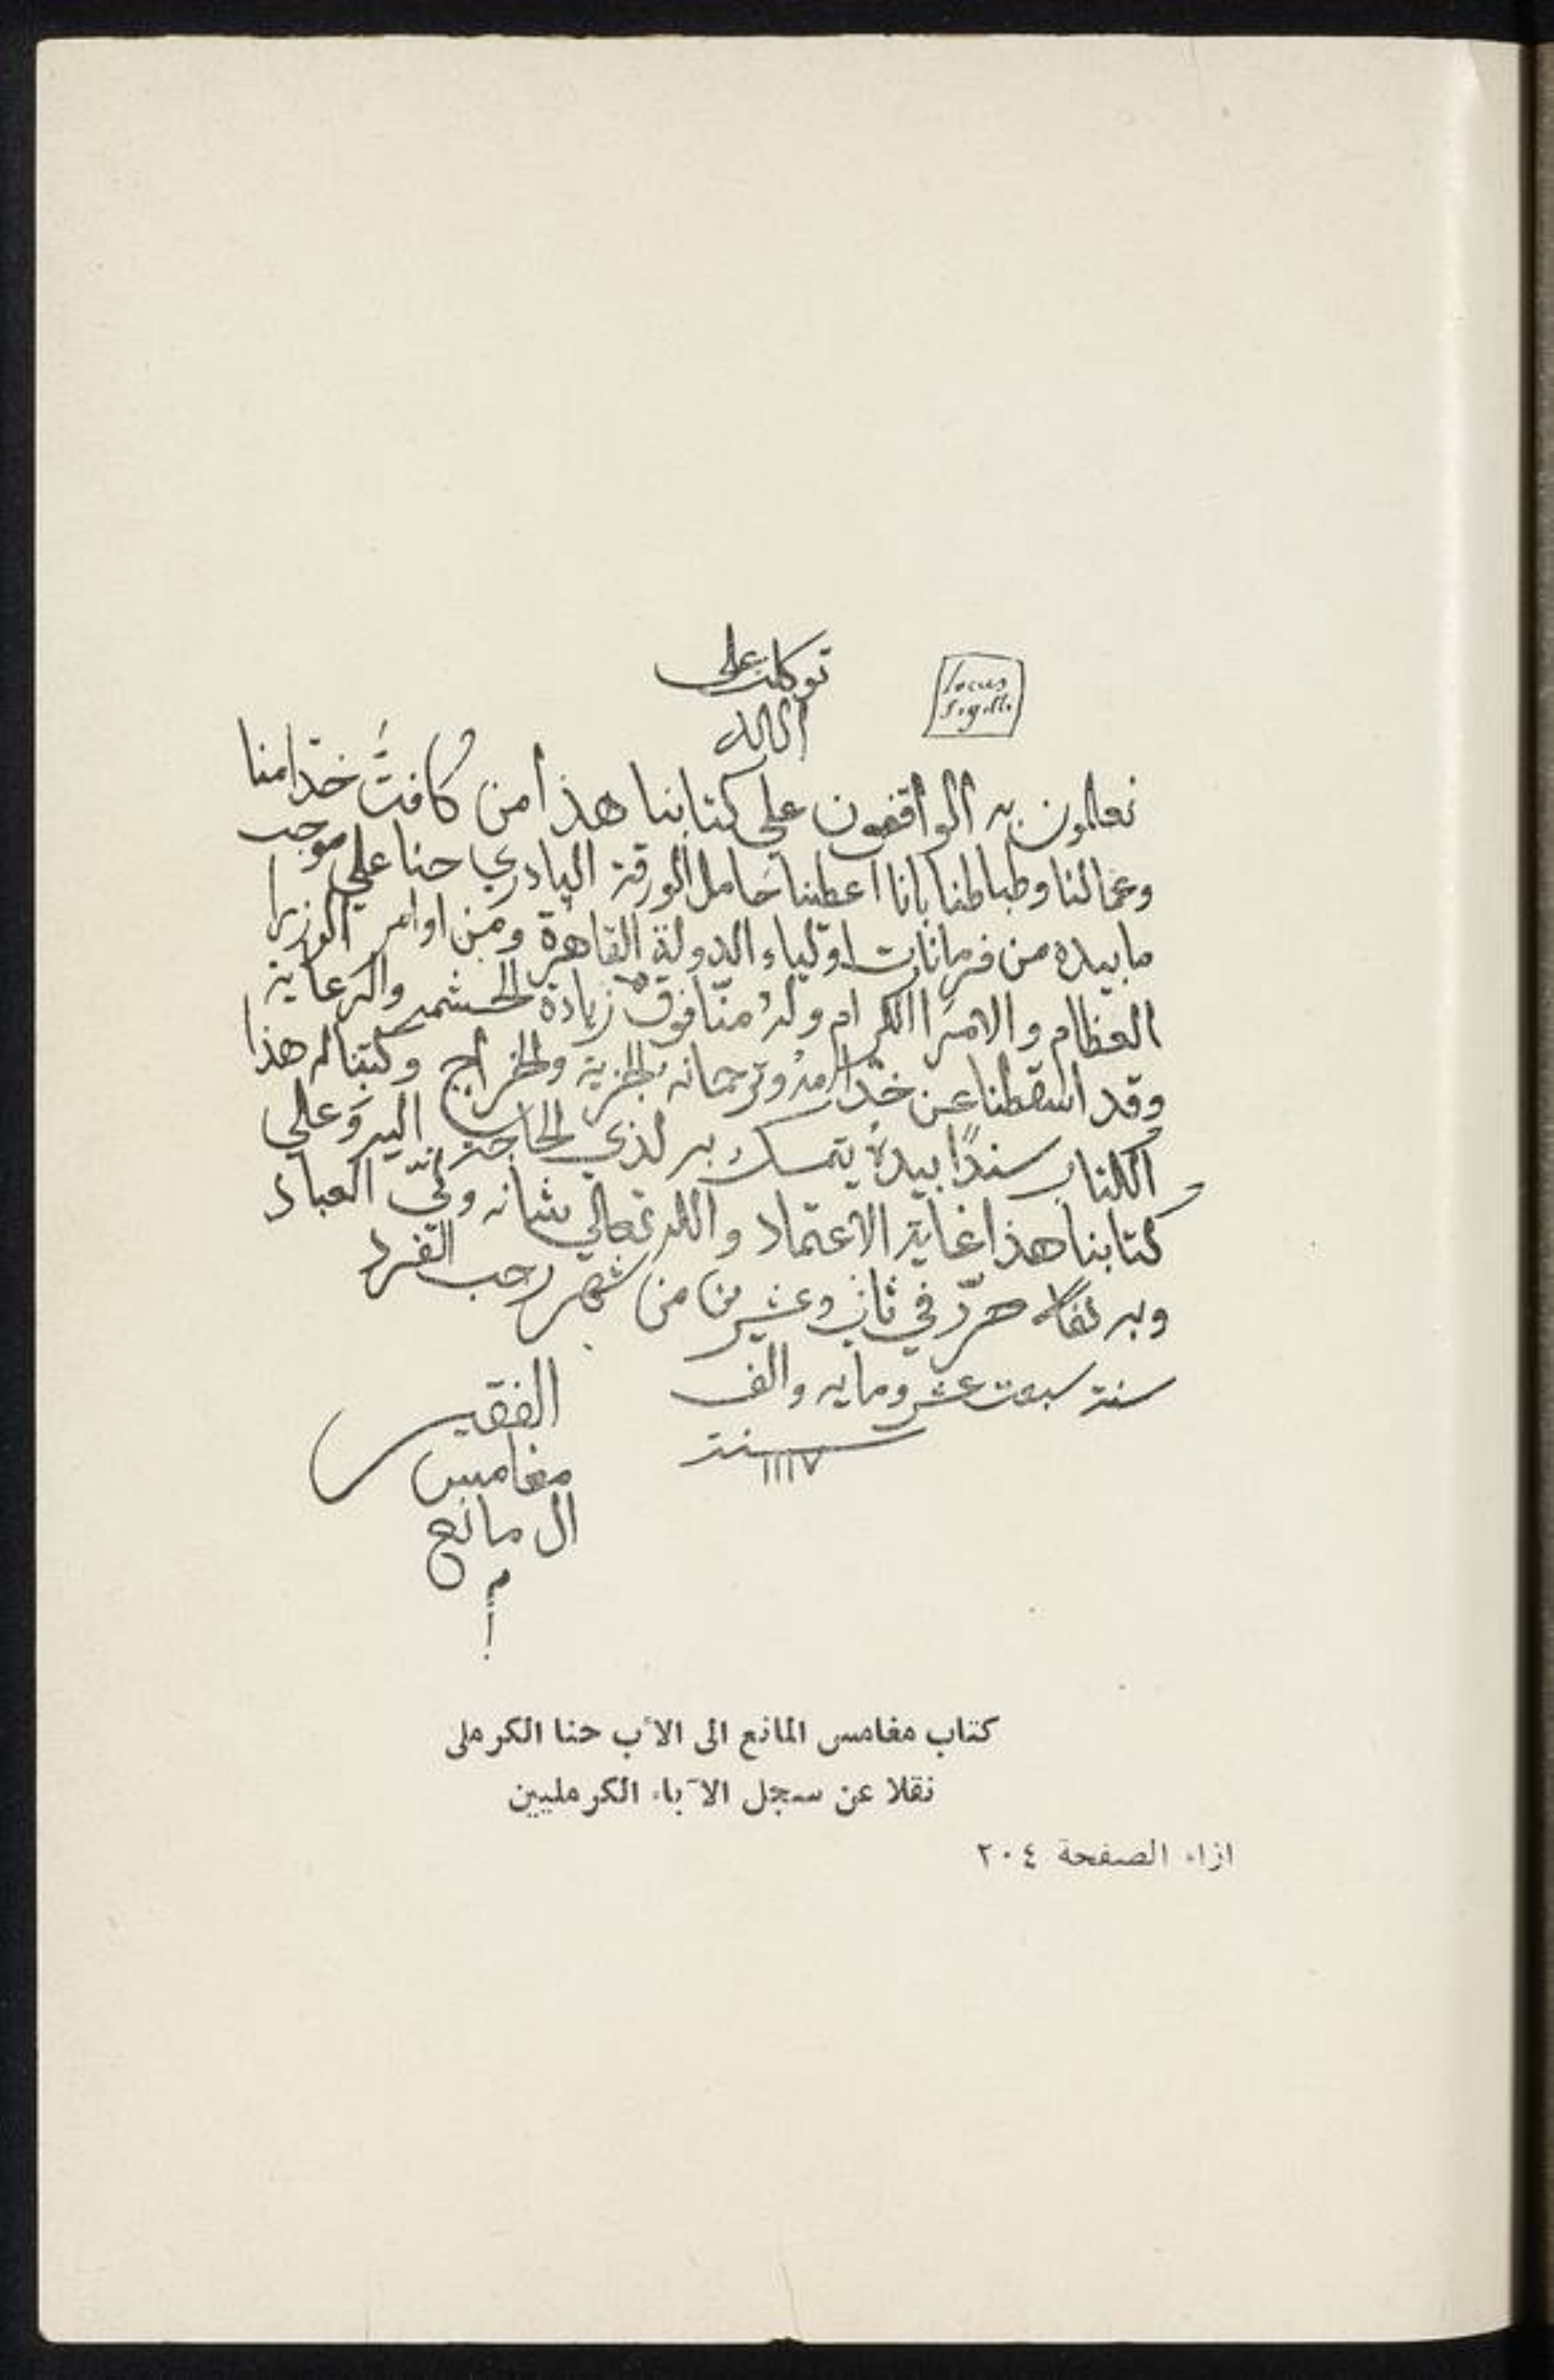 توكلت على
الله
locus
Sigilli
تعلمون به الواقفون على كتابنا هذا من كافتَ خدّامنا
وعمالنا وظباطنا بانا اعطينا حامل الورقة البادري حنا علي موجب
ما بيده من فرمانات اوليآء الدولة القاهرة ومن اوامر الوزرا
العظام والامرا الكرام وله منّا فوق زيادة الحشمه والرعاية
وقد اسقطنا عن خدّامه وترجمانه الجزية والخراج وكتبنا له هذا
الكتاب سندًا بيده يتمسك به لذي الحاجة اليه وعلي
كتابنا هذا غاية الاعتماد والله تعالي شانه وليّ العباد
وبه كفا حرّر في ثاني وعشرين من شهر رجب الفرد
سنة سبعت عشر ومايه والف
سنة
١١١٧
الفقير
مغامس
ال مانع
م
كتاب مغامس المانع الى الأب حنا الكرملى
نقلا عن سجل الآباء الكرمليين
ازاء الصفحة ٢٠٤